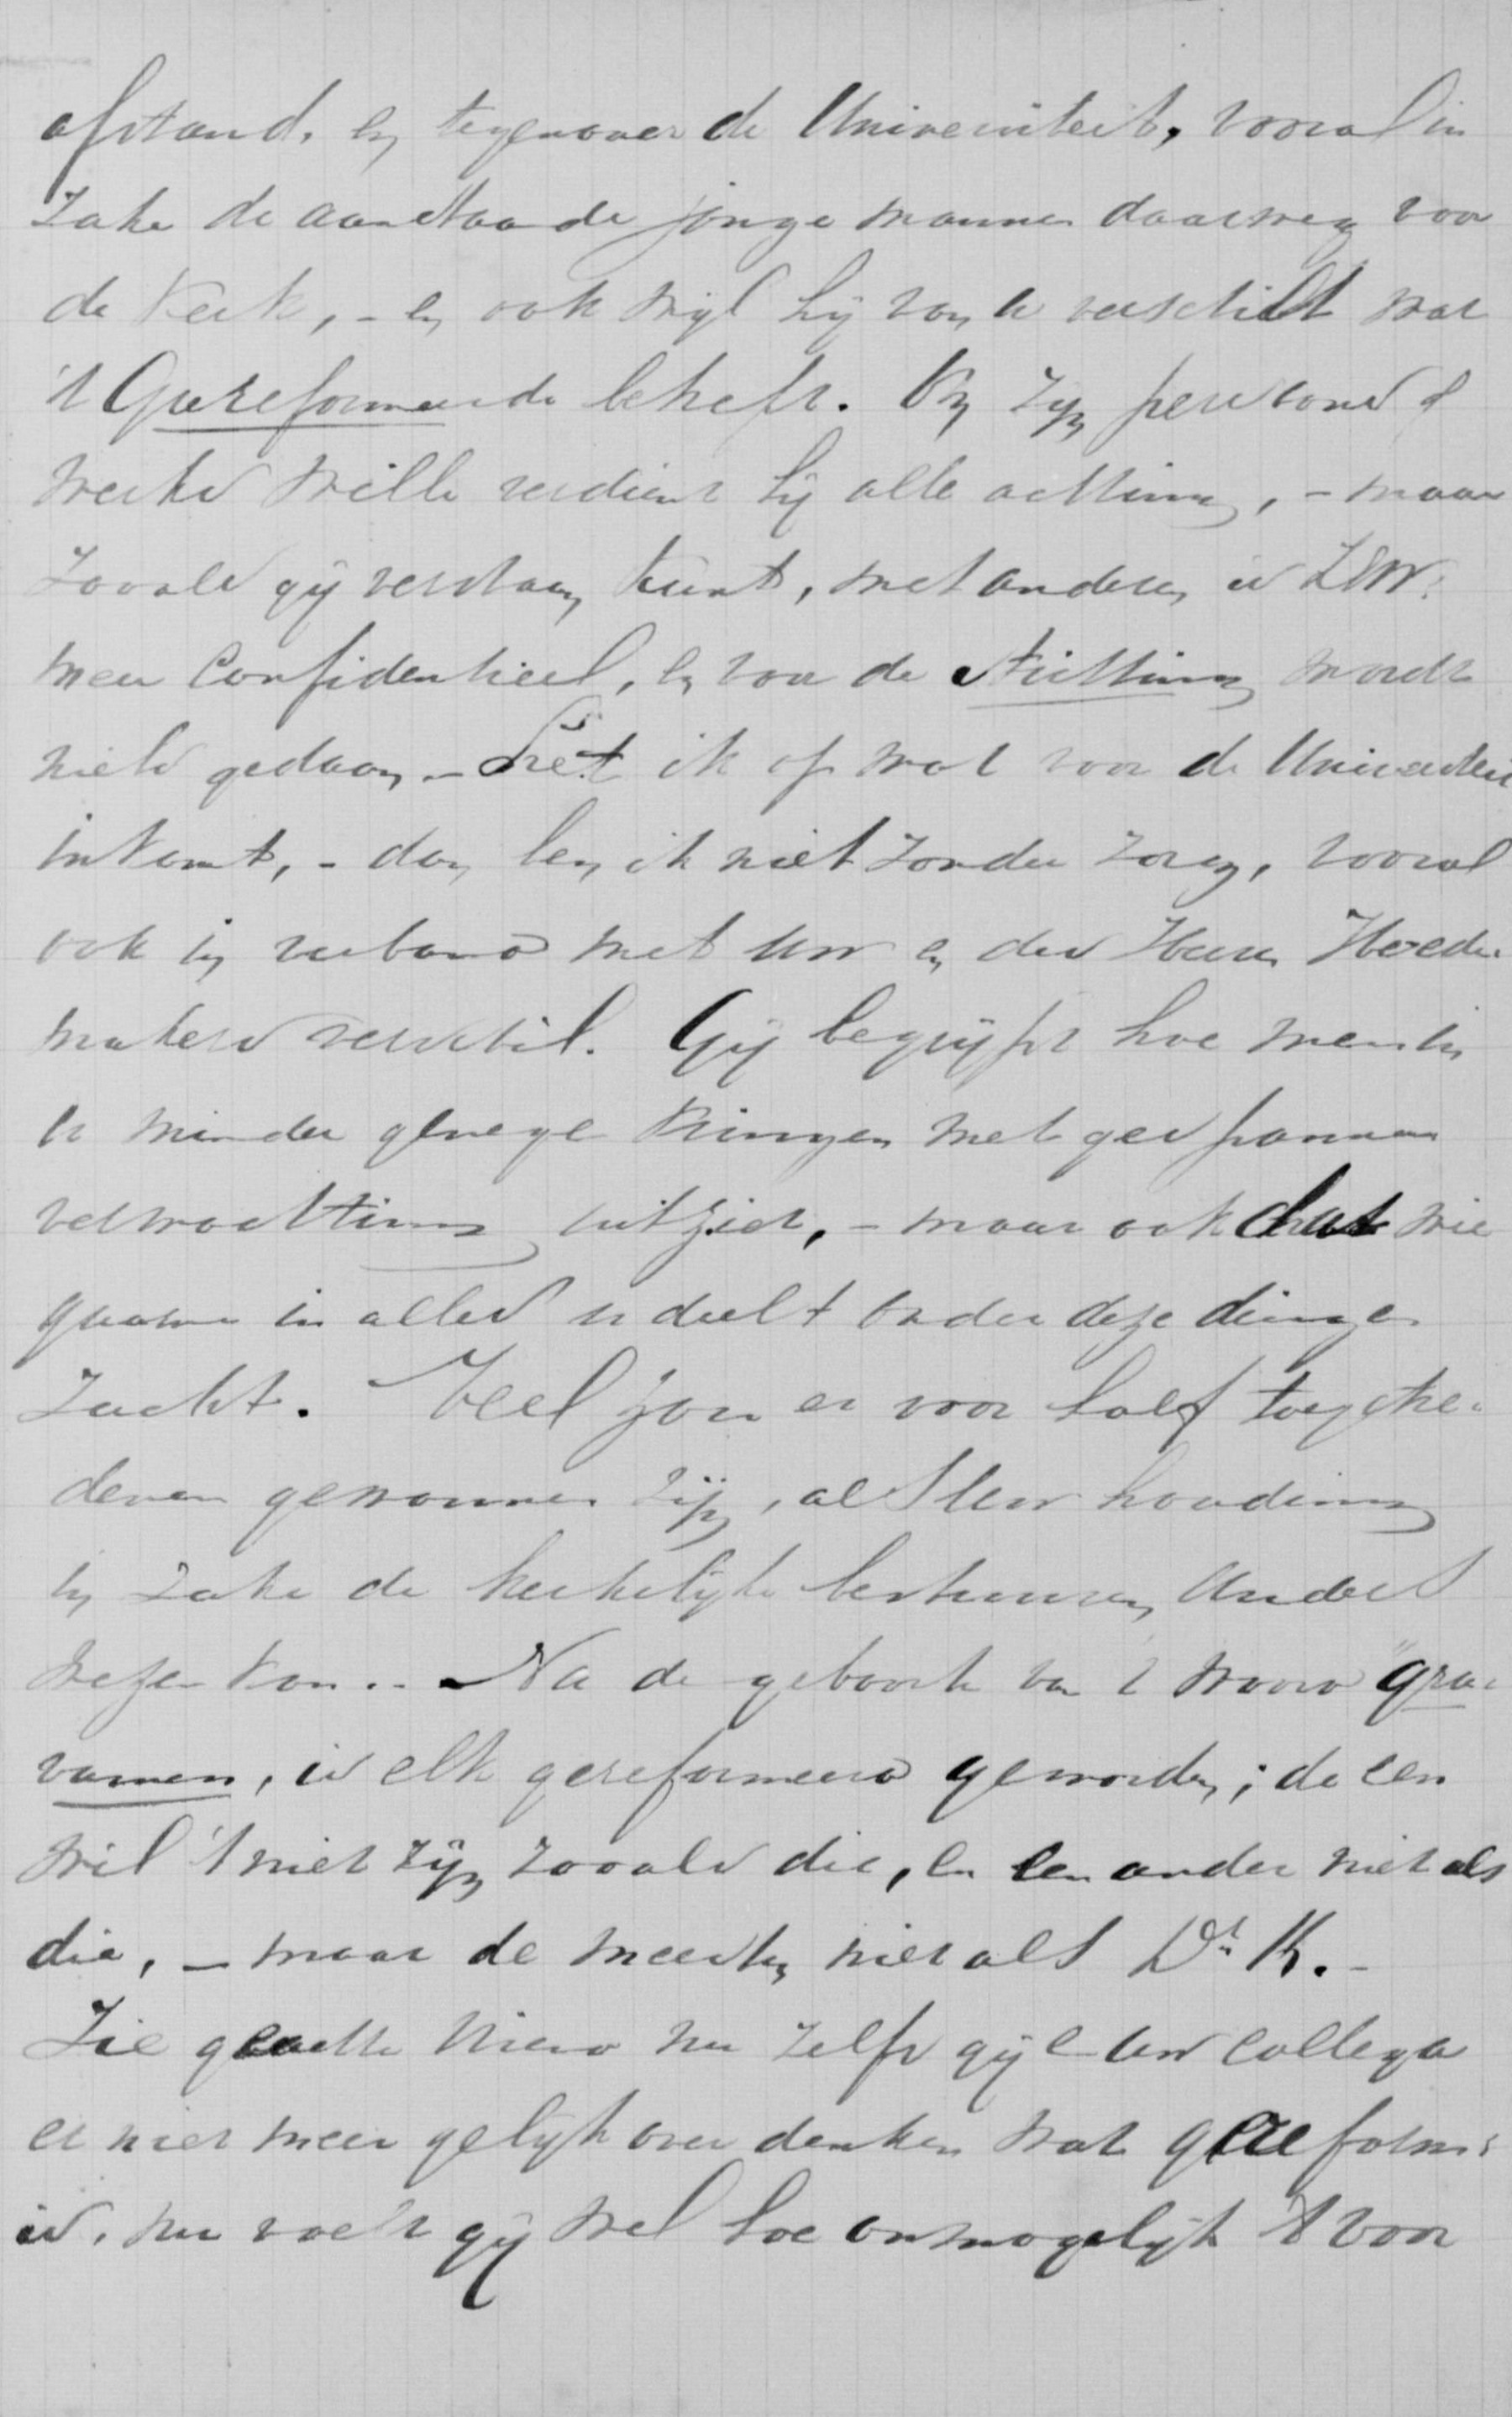 afstand, en tegenover de Universiteit, vooral in
zake de aanstaande jonge mannen daarweg voor
de Kerk, - en ook wijl hij van u verschilt wat
't Gereformeerde betreft. Om zijn persoons of
werks wille verdient hij alle achting, - maar
zooals gij verstaan kunt, met anderen is ZEw.
meer confidentieel, en voor de Stichting wordt
niets gedaan. - Let ik op wat voor de Universiteit
inkomt, - dan ben ik niet zonder zorg, vooral
ook in verband met uw en des Heeren Hoede-
makers verschil. Gij begrijpt hoe men in
u minder genegen kringen met gespannen
verwachting uitziet, - maar ook dat wie
gaarne in alles u deelt onder deze dingen
zucht. Veel zou er voor half tevre-
denen gewonnen zijn, als Uw houding
in zake de kerkelijke besturen, anders
wezen kon. - Na de geboorte van 't woord "gra-
vamen, is elk gereformeerd geworden; de een
wil 't niet zijn zooals die, en een ander niet als
die, - maar de meesten niet als Dr K. -
Zie geachte Vriend nu zelfs gij en uw collega
er niet meer gelijk over denken wat gereform:
is, nu voelt gij wel hoe onmogelijk 't voor